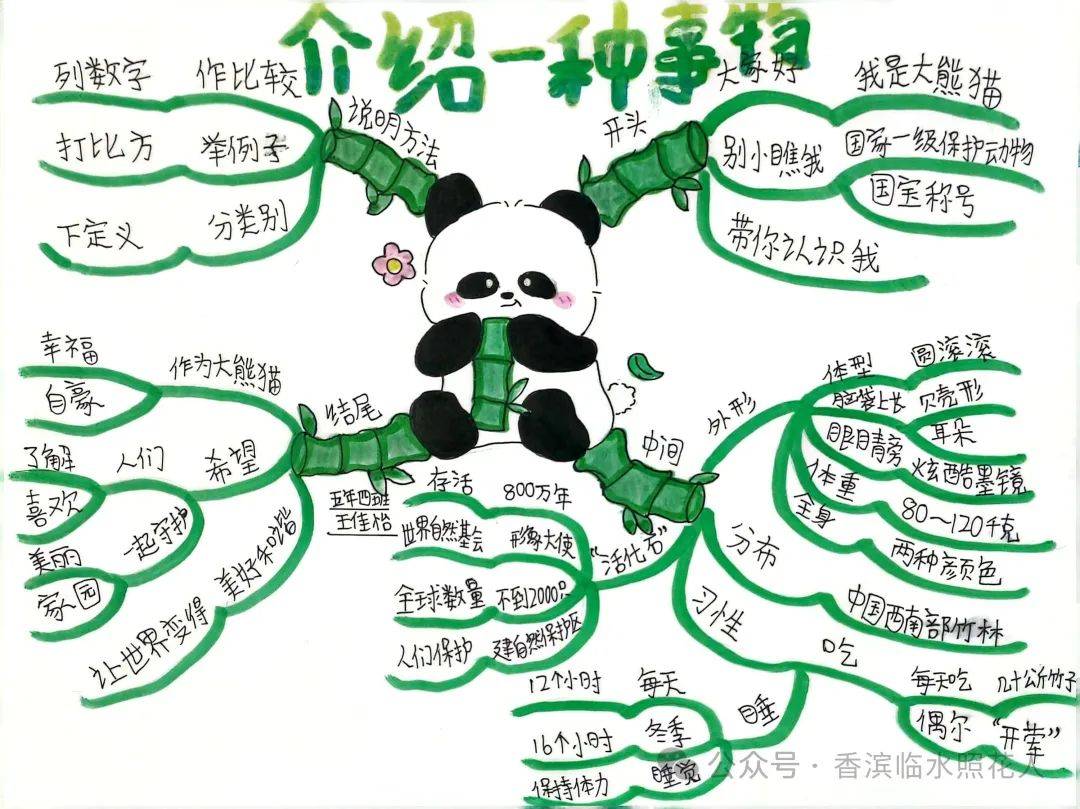 介绍一种事物
说明方法
列数字 作比较
打比方 举例子
下定义 分类别
开头
大家好 我是大熊猫
别小瞧我 国家一级保护动物
国宝称号
带你认识我
中间
外形
体型 圆滚滚
脑袋上长 贝壳形
耳朵
眼睛旁 炫酷墨镜
体重 80～120千克
全身 两种颜色
分布
中国西南部竹林
习性
吃
每天吃 几十公斤竹子
偶尔 “开荤”
睡
每天 12个小时
冬季 16个小时
睡觉 保持体力
“活化石”
存活 800万年
世界自然基会 形象大使
全球数量 不到2000只
人们保护 建自然保护区
结尾
作为大熊猫
幸福
自豪
希望
人们
了解
喜欢
一起守护
美丽
家园
让世界变得美好和谐
五年四班
王佳怡
公众号·香滨临水照花人